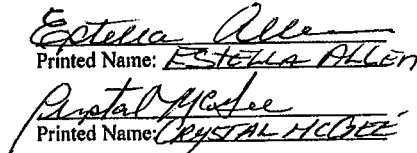 Estella Allen
Printed Name: ESTELLA ALLEN
Crystal McGee
Printed Name: CRYSTAL MCGEE